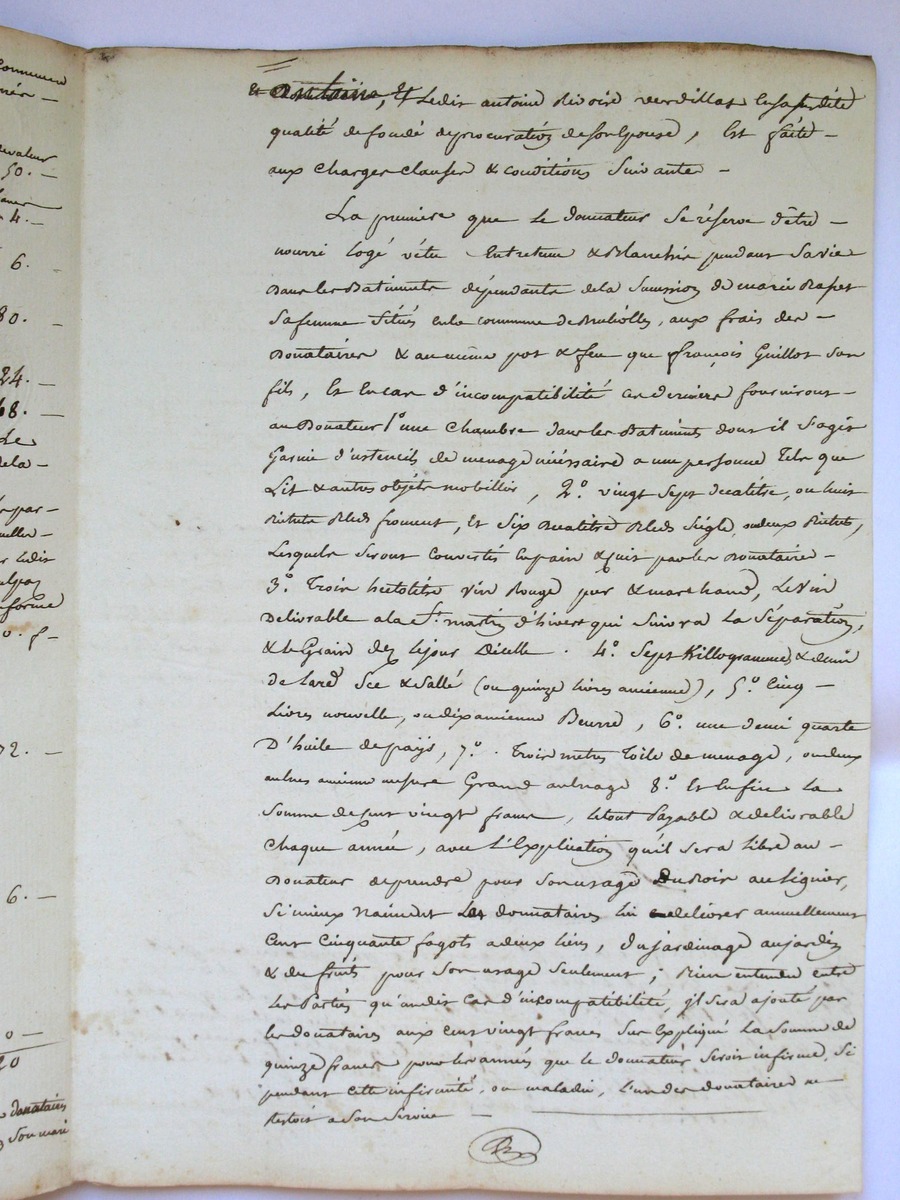 Commune
50. —
4. —
6. —
80. —
24. —
68. —
Le
dela —
par —
ledit
forme
0. f —
72. —
6. —
0 —
20
donataires
son mari
Et Ledit antoine Rivoire verdillat En sa ditte
qualité de fondé de procuration de son Epouse, Est faite —
aux Charges clauses & conditions Suivantes —
La premiere que Le donnateur Se réserve d'être —
nourri logé vétu Entretenu & Blanchis pendant Sa vie
Dans les Batiments dépendants de la Succession de marie Rapet
Sa femme Situés en la commune de, aux frais des —
Donataires & au même pot & feu que françois Guillot son
fils, Et En cas d'incompatibilité ces derniers fourniront —
au Donateur 1o une Chambre dans les Batiments dont il s'agit
Garnie d'ustencils de menage nécéssaire a une personne Tels que
Lit & autres objets mobilliers, 2o. vingt Sept decalitre, ou huit
Bleds froment, Et Six decalitre Bleds Seigle, ou deux
Lesquels Seront Convertis En pain & Cuit par les Donataires —
3o. Trois hectolitre vin Rouge pur & marchand, Le Vin
Delivrable a la St. martin d'hivert qui Suivra La Séparation,
& le Grain dez le jour D'icelle. 4o. Sept Killogrammes & demi
De Lard Sec & Sallé (ou quinze livres ancienne), 5o. Cinq —
Livres nouvelle, ou dix ancienne Beurre, 6o. une demi quarte
D'huile de païs, 7o. Trois metres Toile de menage, ou deux
aulnes ancienne mesure Grand aulnage 8o. Et Enfin La
Somme de Cent vingt francs, Le tout Payable & delivrable
Chaque année, avec L'Explication qu'il Sera Libre au —
Donateur de prendre pour Son usage Du Bois au Lignier,
Si mieux n'aiment Les donnataires lui delivrer annuellement
Cent Cinquante fagots a deux liens, du jardinage au jardin
& des fruits pour Son usage Seulement; Bien entendu entre
Les Parties qu'audit Cas d'incompatibilité, il Sera ajouté par
les donataires aux Cent vingt francs Sus Expliqué La Somme de
quinze francs pour les années que le donnateur Seroit infirme, Si
pendant Cette infirmité, ou maladie, L'un des donataires ne
Restoit a Son Service —